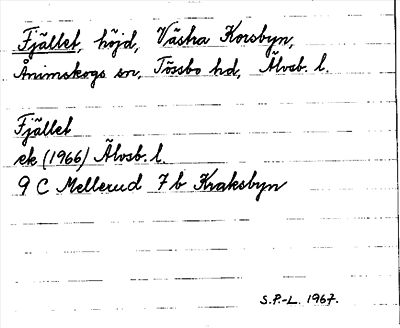 Fjället, höjd, Västra Korsbyn,
Ånimskogs sn, Tössbo hd, Älvsb. l.
Fjället
ek (1966) Älvsb. l.
9 C Mellerud 7 b Kraksbyn
S.P.-L. 1967.